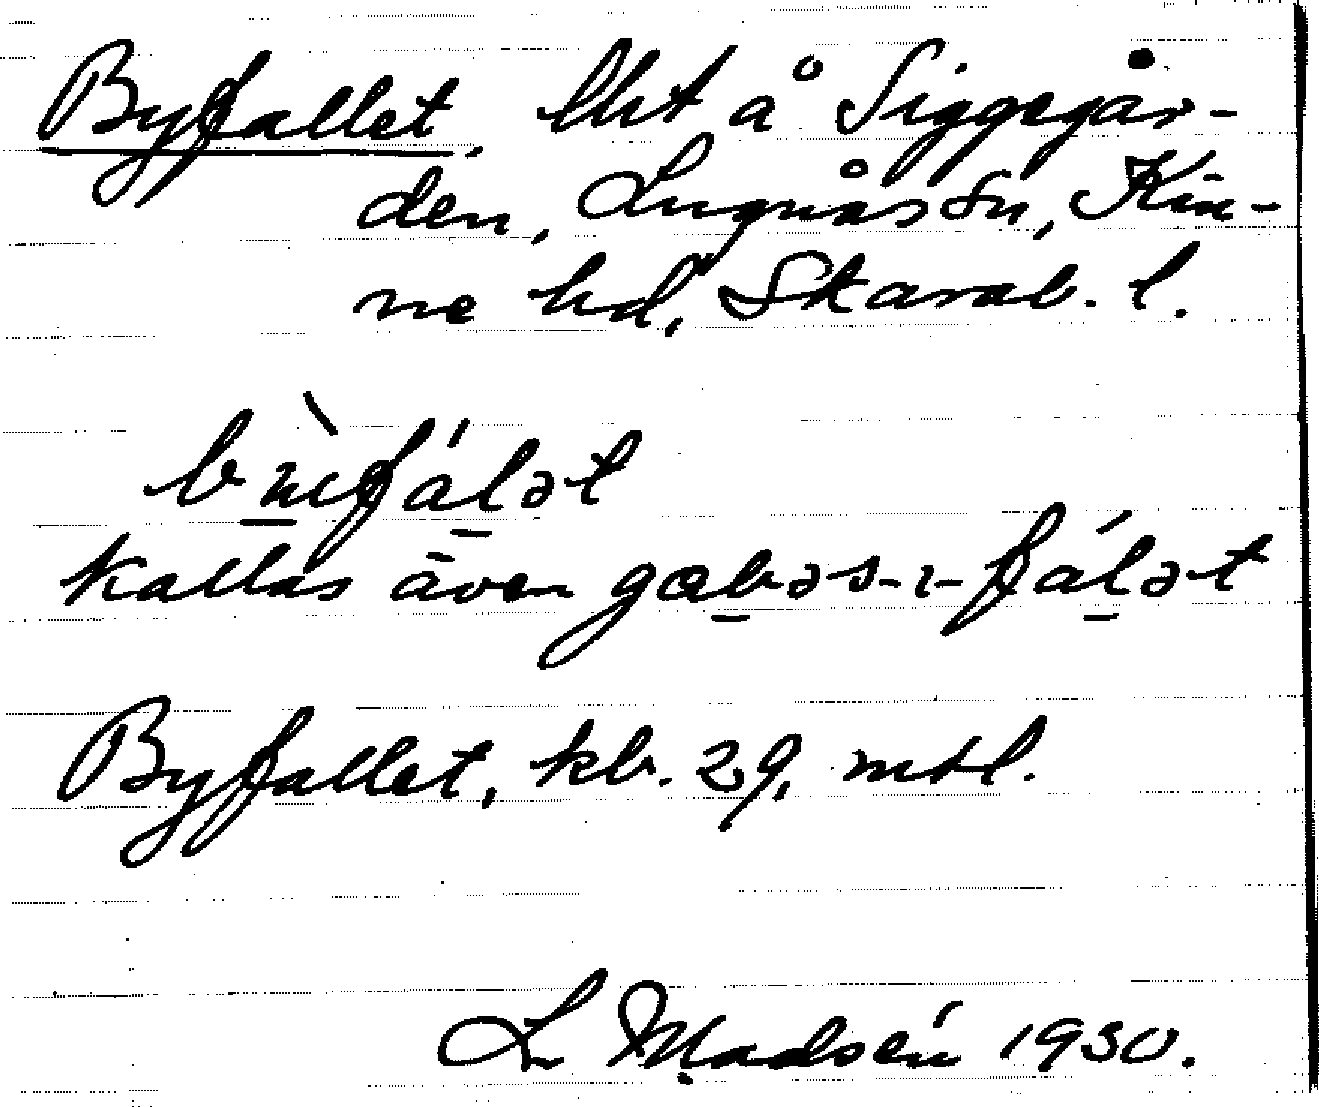 Byfallet, lht å Siggegår-
den, Lugnås sn, Kin-
ne hd, Skarab. l.
kallas även gabəs-ɩ-fálət
Byfallet, kb. 29, mtl.
L Madsén 1930.